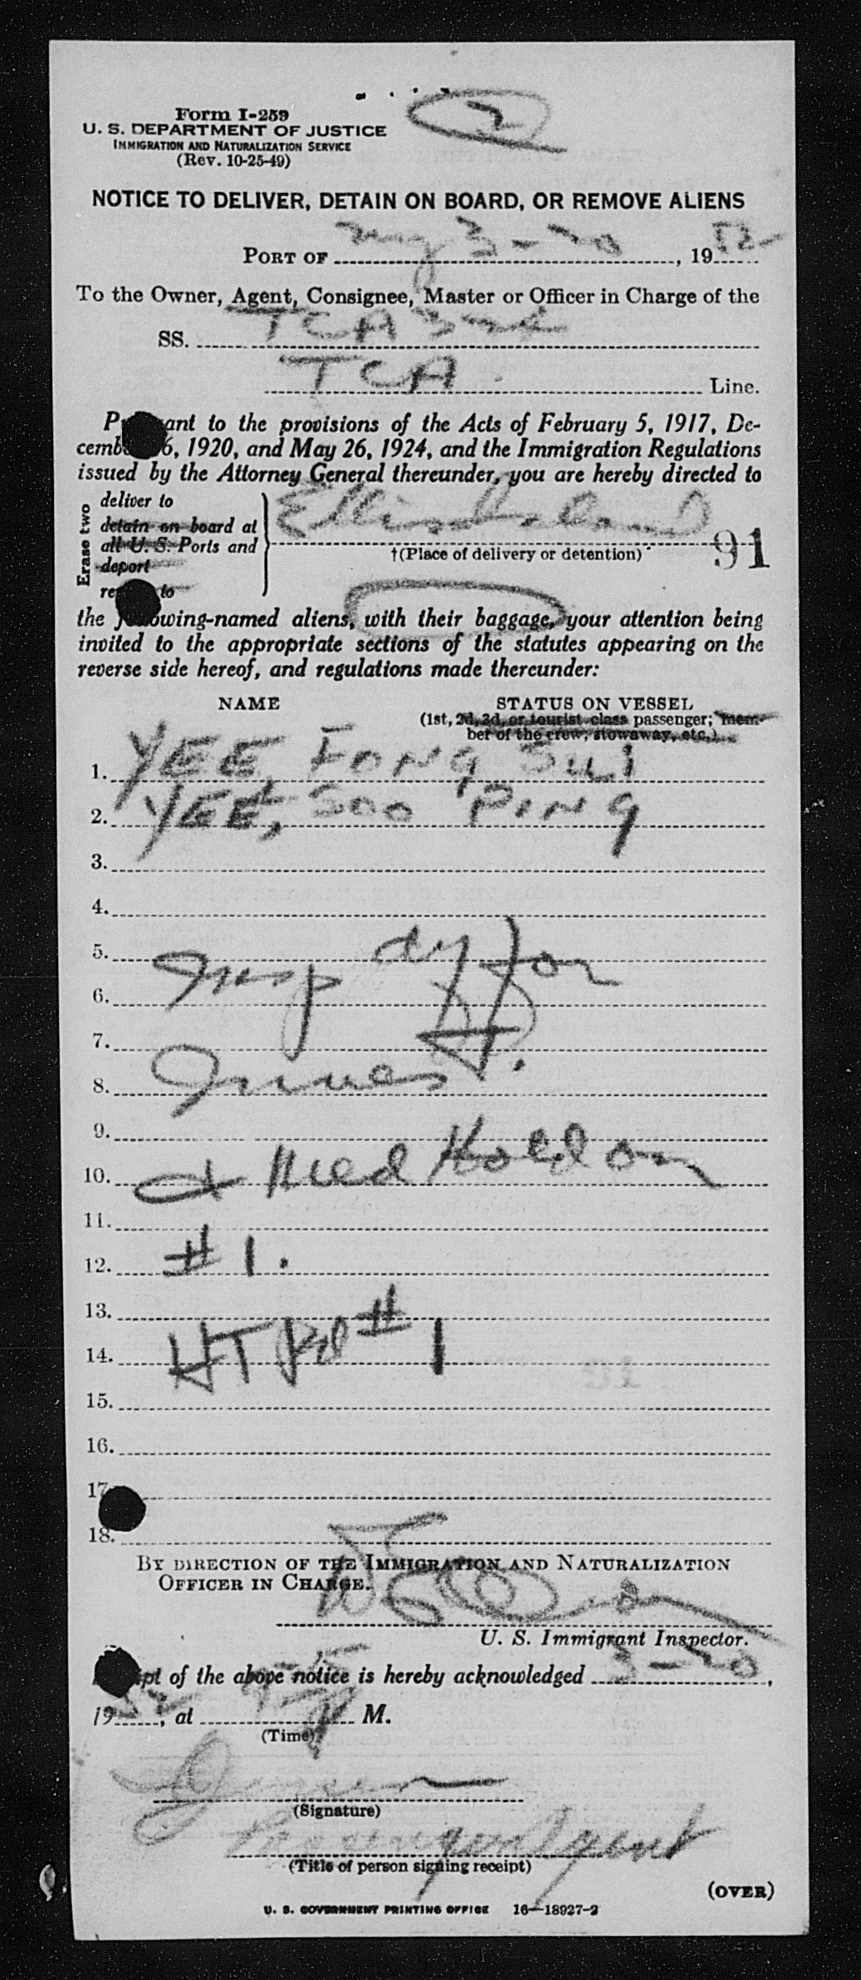 2
Form I-259
U. S. DEPARTMENT OF JUSTICE
IMMIGRATION AND NATURALIZATION SERVICE
(Rev. 10-25-49)
NOTICE TO DELIVER, DETAIN ON BOARD, OR REMOVE ALIENS
PORT OF NY 3-20, 1952
To the Owner, Agent, Consignee, Master or Officer in Charge of the
SS. TCA
TCA Line.
Pursuant to the provisions of the Acts of February 5, 1917, De-
cember 26, 1920, and May 26, 1924, and the Immigration Regulations
issued by the Attorney General thereunder, you are hereby directed to
Erase two
deliver to
detain on board at
all U. S. Ports and
deport
to
Ellis Island
†(Place of delivery or detention)
91
the following-named aliens, with their baggage, your attention being
invited to the appropriate sections of the statutes appearing on the
reverse side hereof, and regulations made thereunder:
NAME STATUS ON VESSEL
(1st, 2d, 3d, or tourist class passenger; mem-
ber of the crew; stowaway, etc.)
1. YEE, FONG SUI
2. YEE, SOO PING
3.
4.
5. Insp for
6.
7.
8.
9.
10. & Med Hold on
11.
12. #1.
13.
14. HT Rd #1
15.
16.
17.
18.
BY DIRECTION OF THE IMMIGRATION AND NATURALIZATION
OFFICER IN CHARGE.
U. S. Immigrant Inspector.
Receipt of the above notice is hereby acknowledged 3-20,
1952, at M.
(Time)
(Signature)
Passenger Agent
(Title of person signing receipt)
(OVER)
U. S. GOVERNMENT PRINTING OFFICE 16—18927-2